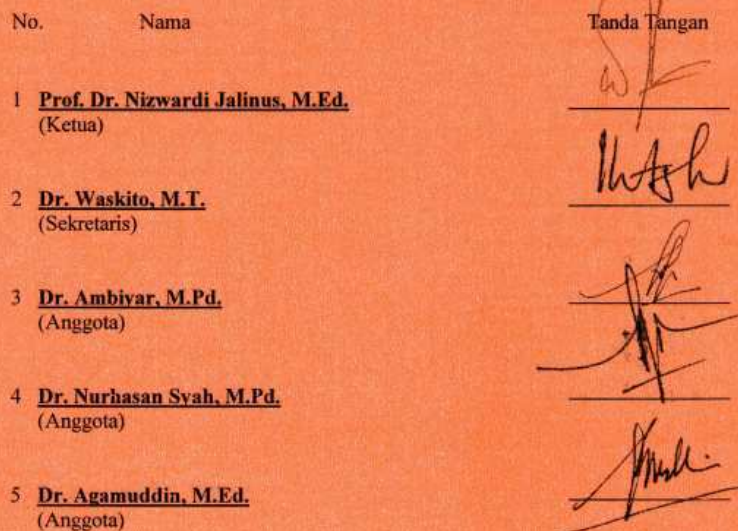 No. Nama Tanda Tangan
1 Prof. Dr. Nizwardi Jalinus, M.Ed.
(Ketua)
2 Dr. Waskito, M.T.
(Sekretaris)
3 Dr. Ambiyar, M.Pd.
(Anggota)
4 Dr. Nurhasan Syah, M.Pd.
(Anggota)
5 Dr. Agamuddin, M.Ed.
(Anggota)